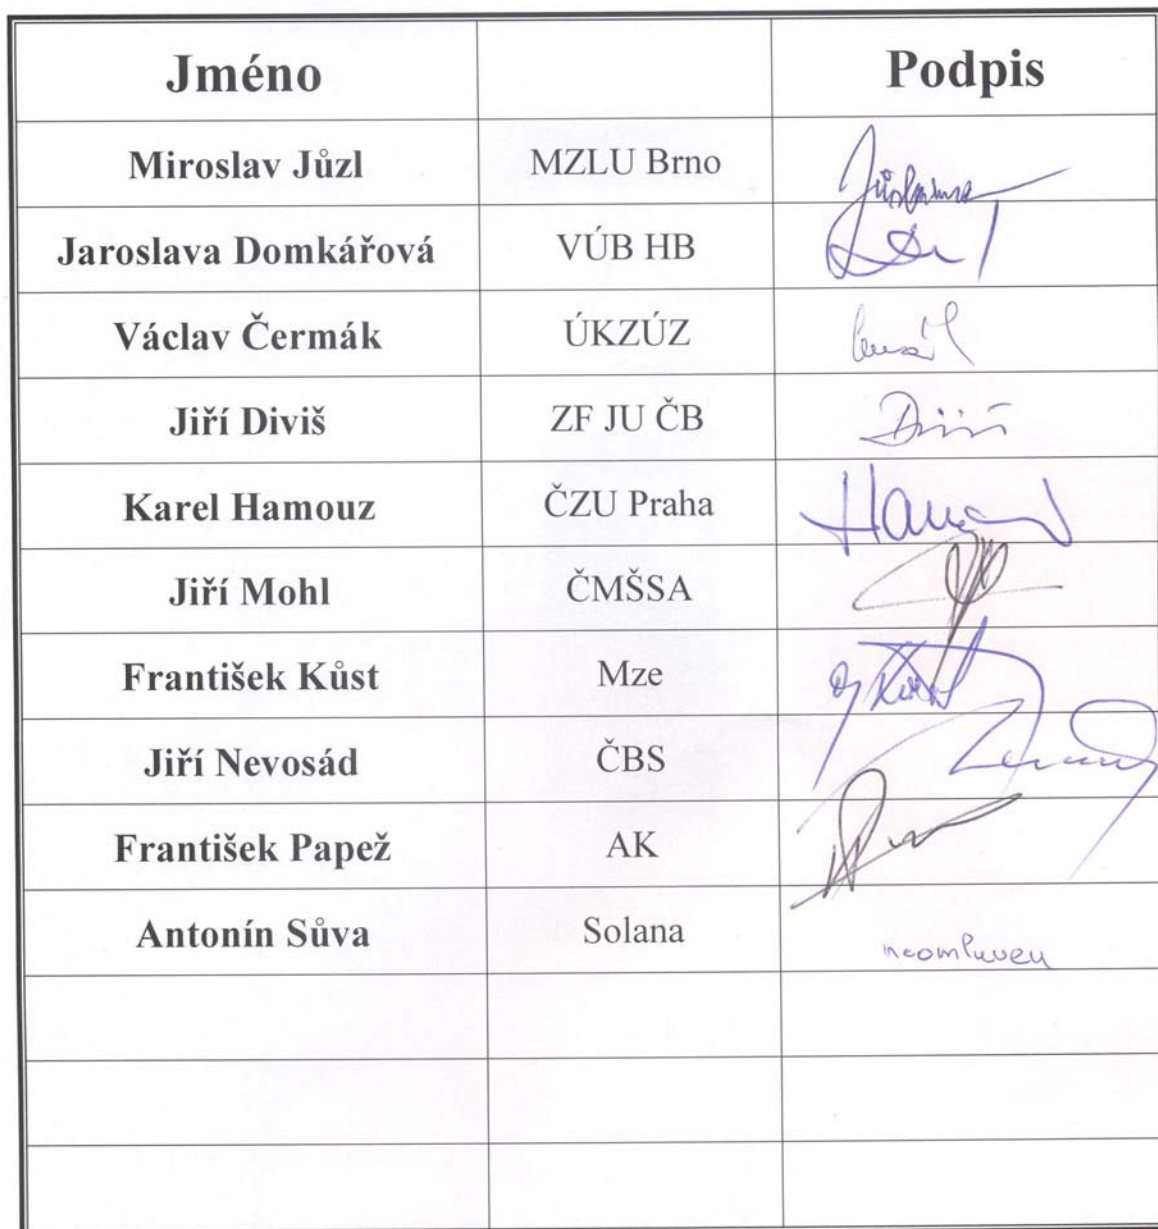 Jméno Podpis
Miroslav Jůzl MZLU Brno
Jaroslava Domkářová VÚB HB
Václav Čermák ÚKZÚZ
Jiří Diviš ZF JU ČB
Karel Hamouz ČZU Praha
Jiří Mohl ČMŠSA
František Kůst Mze
Jiří Nevosád ČBS
František Papež AK
Antonín Sůva Solana neomluven